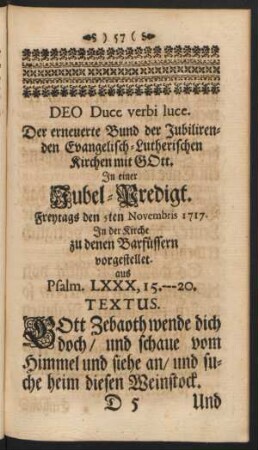 ) 57 (
DEO Duce verbi luce.
Der erneuerte Bund der Jubiliren-
den Evangelisch-Lutherischen
Kirchen mit GOtt.
In einer
Jubel-Predigt.
Freytags den 5ten Novembris 1717.
In der Kirche
zu denen Barfüssern
vorgestellet.
aus
Psalm. LXXX, 15.---20.
TEXTUS.
GOtt Zebaoth wende dich
doch/ und schaue vom
Himmel und siehe an/ und su-
che heim diesen Weinstock.
D 5 Und